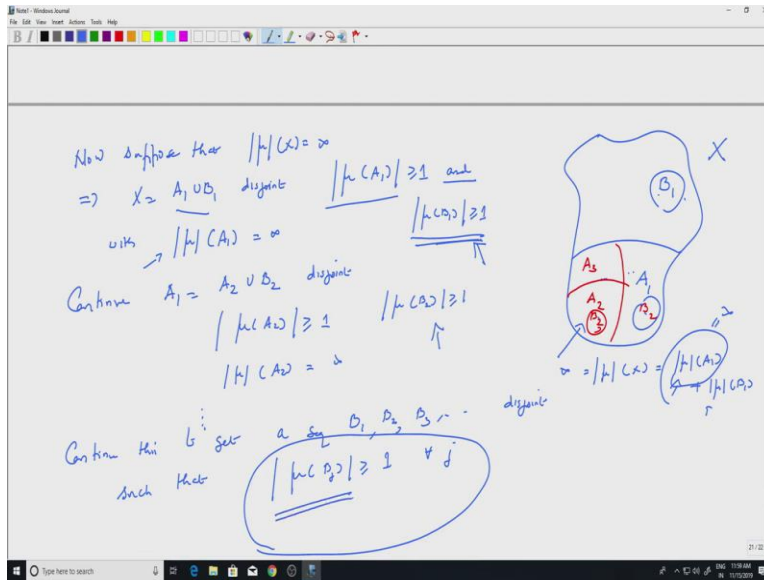 Note1 - Windows Journal
File Edit View Insert Actions Tools Help
Now suppose that |μ|(X) = ∞
⇒ X = A₁ ∪ B₁ disjoint |μ(A₁)| ≥ 1 and
|μ(B₁)| ≥ 1
with |μ|(A₁) = ∞
Continue A₁ = A₂ ∪ B₂ disjoint
|μ(A₂)| ≥ 1 |μ(B₂)| ≥ 1
|μ|(A₂) = ∞
Continue this to get a seq B₁, B₂, B₃, ... disjoint
such that |μ(Bⱼ)| ≥ 1 ∀ j
X
B₁
A₃
A₁
A₂
B₃
B₂
= ∞
∞ = |μ|(X) = |μ|(A₁)
+ |μ|(B₁)
21 / 22
Type here to search
ENG 11:59 AM
IN 11/15/2019